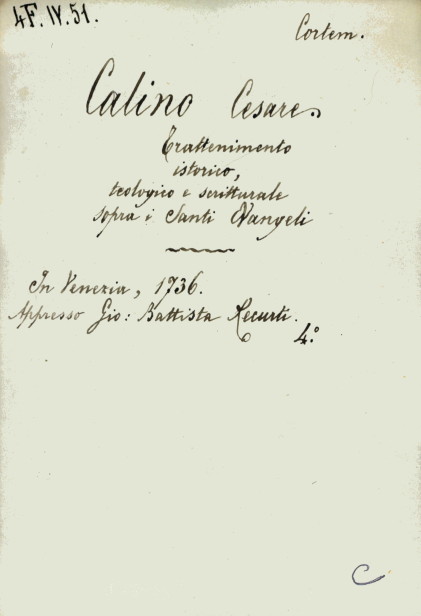 4F. IV. 51.
Cortem.
Calino Cesare.
Trattenimento
istorico,
teologico e scritturale
sopra i Santi Vangeli
In Venezia, 1736.
Appresso Gio: Battista Recurti.
4.º
C